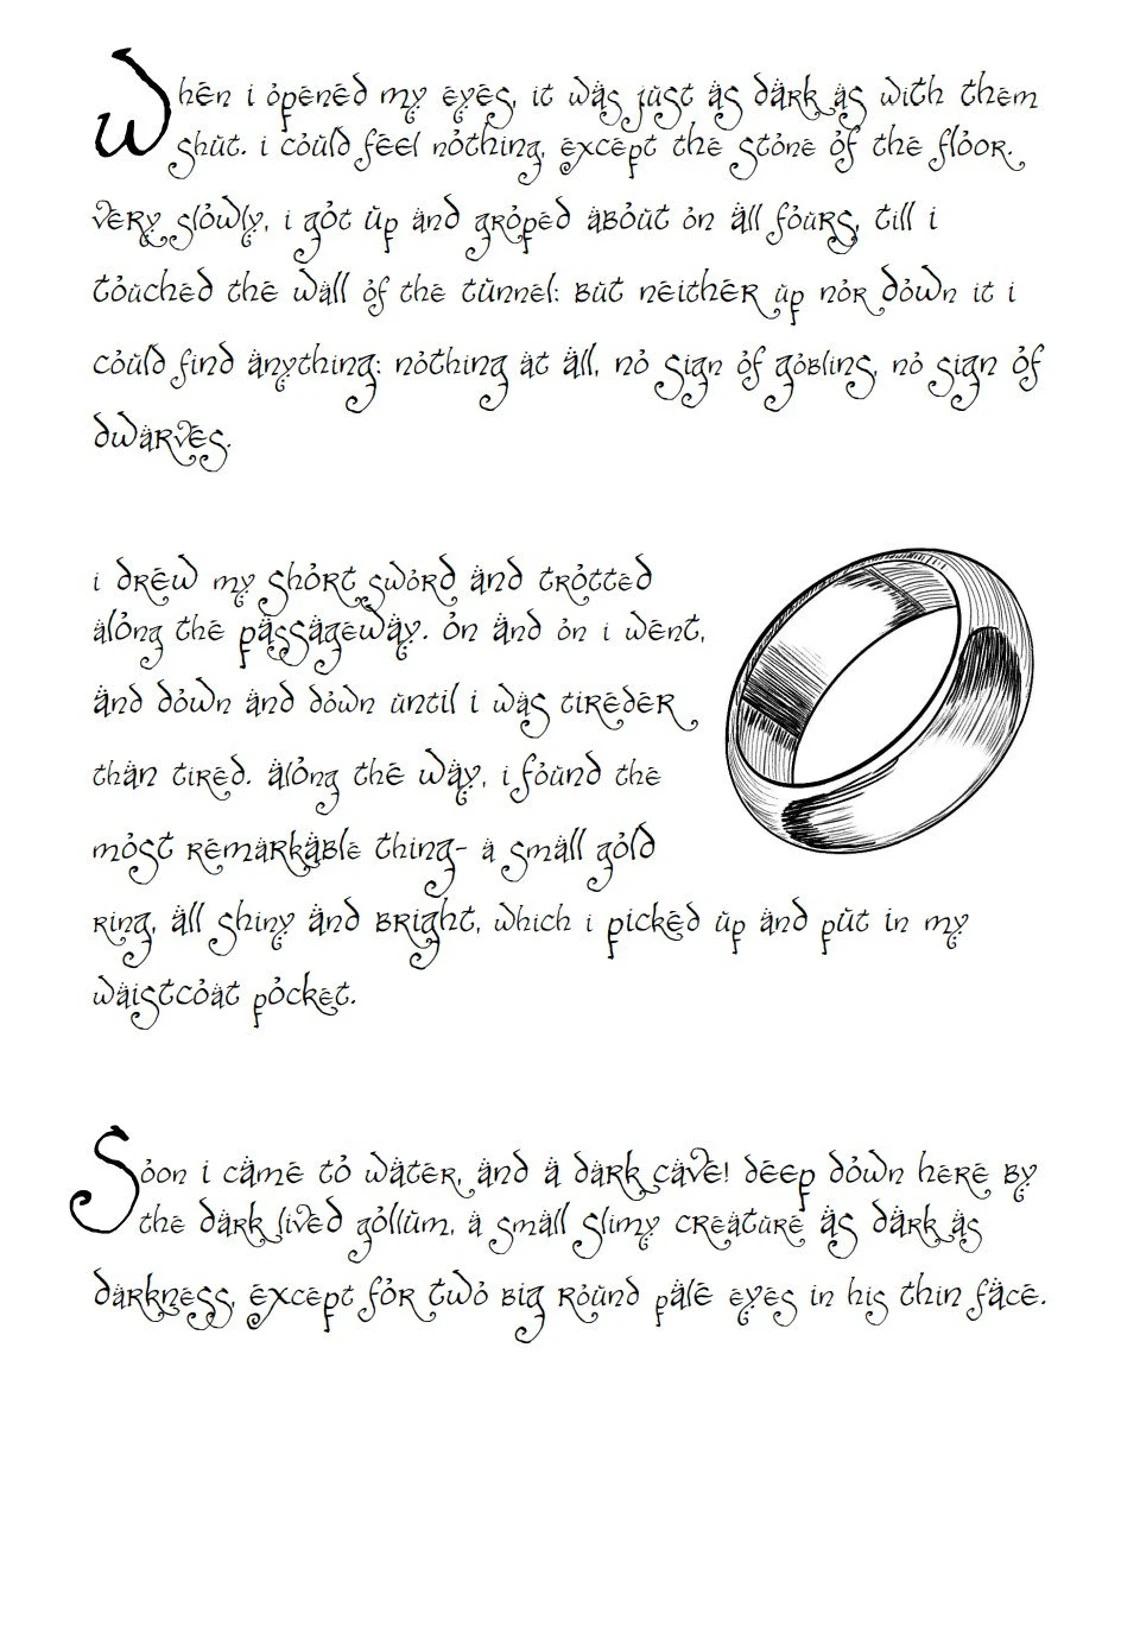 When i opened my eyes, it was just as dark as with them
shut. i could feel nothing, except the stone of the floor.
very slowly, i got up and groped about on all fours, till i
touched the wall of the tunnel: but neither up nor down it i
could find anything: nothing at all, no sign of goblins, no sign of
dwarves.
i drew my short sword and trotted
along the passageway. on and on i went,
and down and down until i was tireder
than tired. along the way, i found the
most remarkable thing- a small gold
ring, all shiny and bright, which i picked up and put in my
waistcoat pocket.
Soon i came to water, and a dark cave! deep down here by
the dark lived gollum, a small slimy creature as dark as
darkness, except for two big round pale eyes in his thin face.